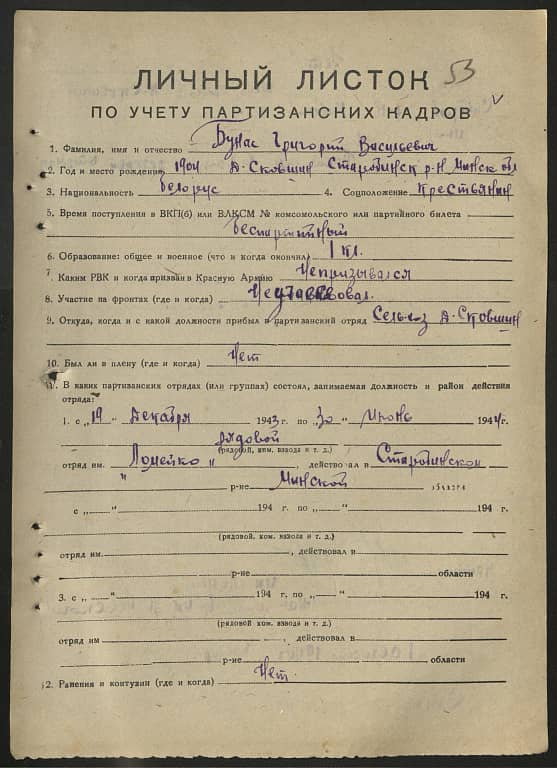 53
ЛИЧНЫЙ ЛИСТОК
ПО УЧЕТУ ПАРТИЗАНСКИХ КАДРОВ
1. Фамилия, имя и отчество Бунас Григорий Васильевич
2. Год и место рождения 1904 д. Сковшин Старобинск р-н Минск обл
3. Национальность белорус 4. Соцположение Крестьянин
5. Время поступления в ВКП(б) или ВЛКСМ № комсомольского или партийного билета
беспартийный
6. Образование: общее и военное (что и когда окончил) 1 кл.
7. Каким РВК и когда призван в Красную Армию Непризывался
8. Участие на фронтах (где и когда) Неучаствовал.
9. Откуда, когда и с какой должности прибыл в партизанский отряд д. Сковшин
10. Был ли в плену (где и когда) Нет
11. В каких партизанских отрядах (или группах) состоял, занимаемая должность и район действия
отряда:
1. с „19" декабря 1943 г. по „30" Июнь 1944 г.
рядовой
(рядовой, ком. взвода и т. д.)
отряд им. „Ломейко", действовал в Старобинском
р-не Минской области
с „ " 194 г. по „ " 194 г.
(рядовой, ком. взвода и т. д.)
отряд им. , действовал и
р-не области
3. с „ " 194 г. по „ " 194 г.
(рядовой ком. взвода и т. д.)
отряд им , действовал в
р-не области
12. Ранения и контузии (где и когда) Нет.